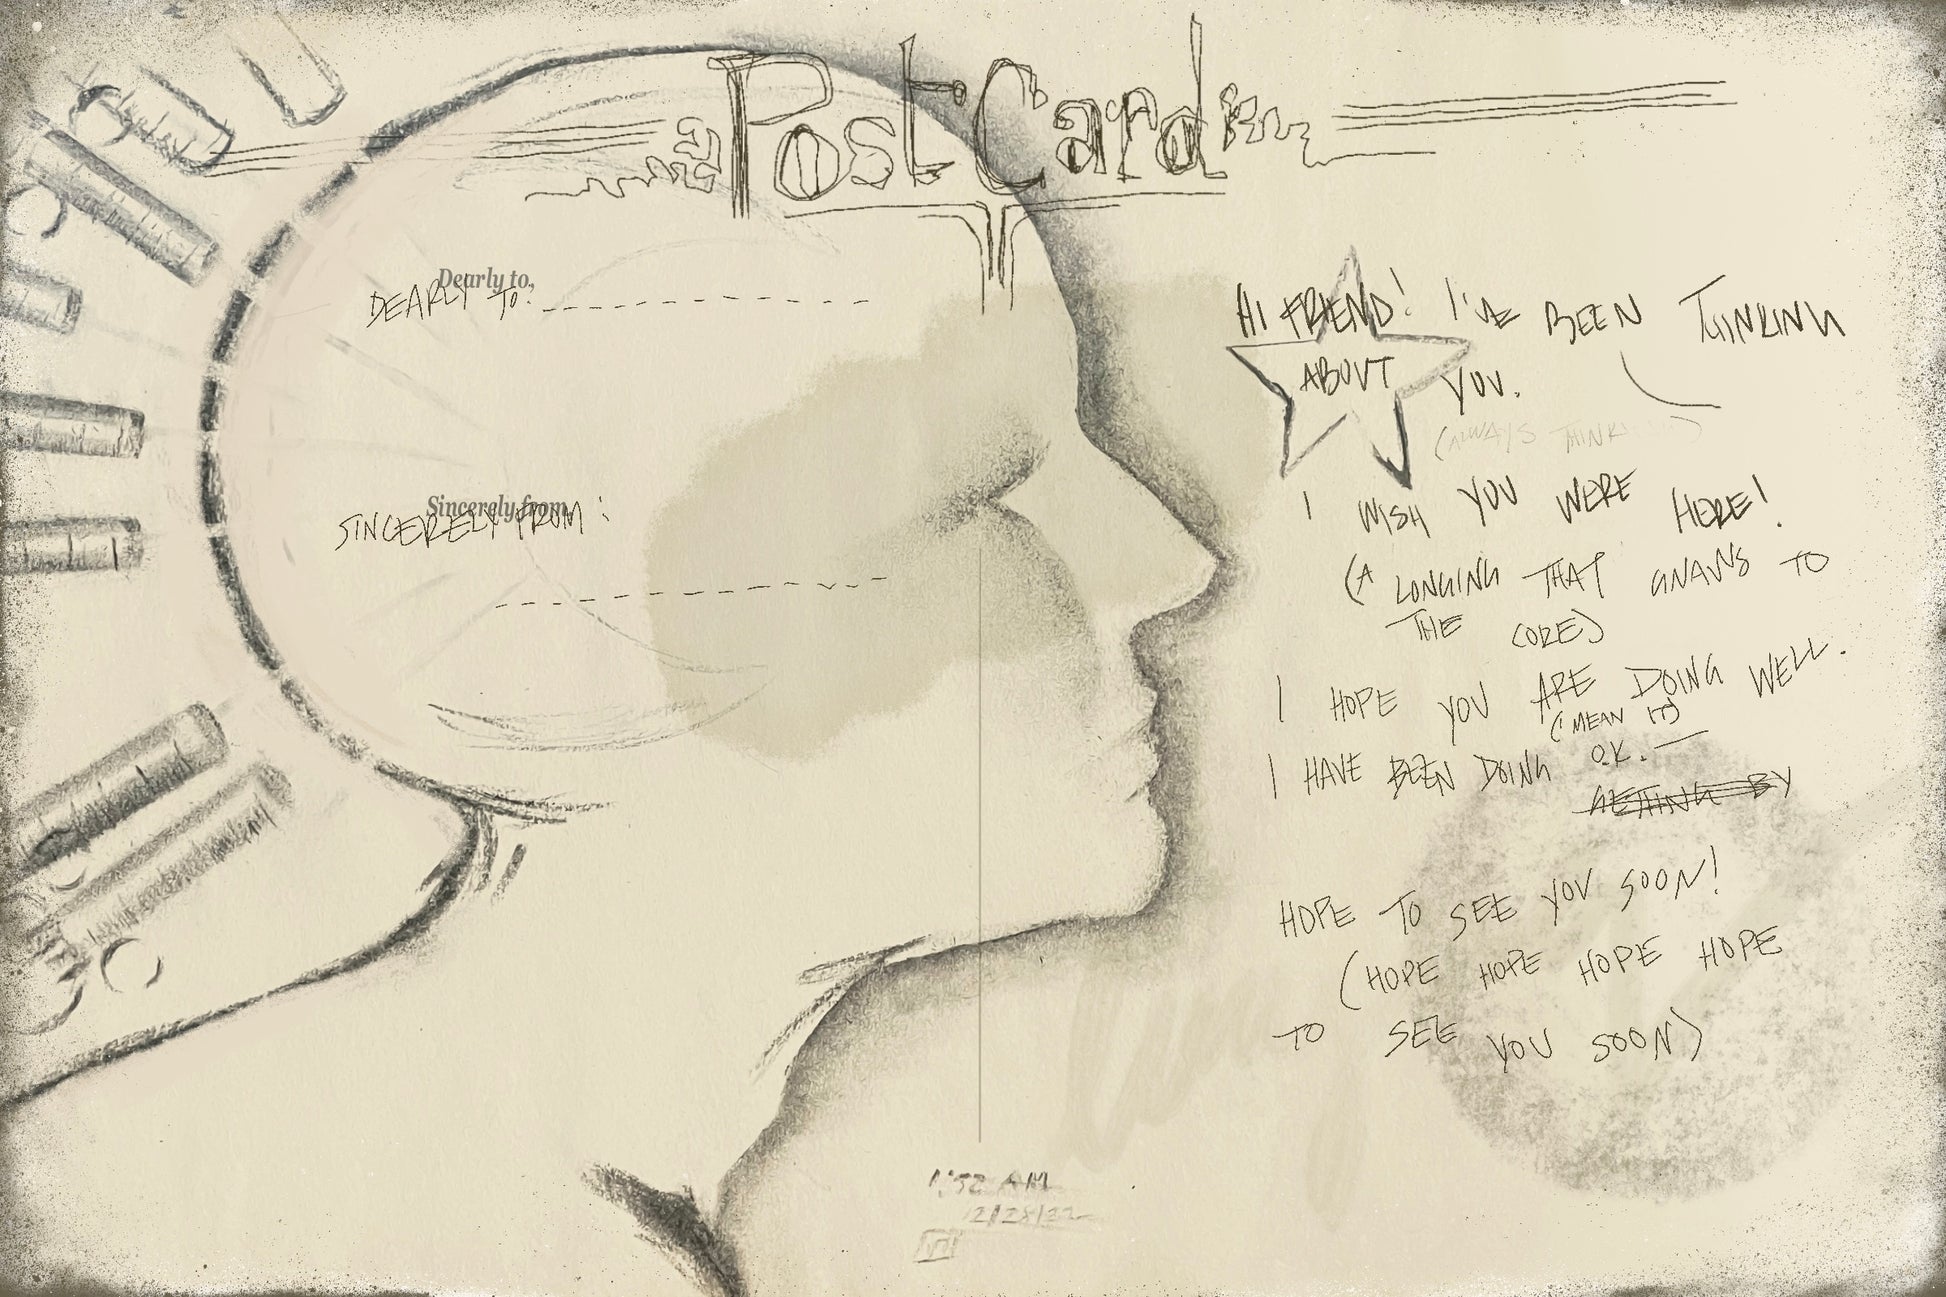 Post Card
Dearly to,
DEARLY TO:
Sincerely from,
SINCERELY FROM:
HI FRIEND! I'VE BEEN THINKING
ABOUT YOU.
(ALWAYS THINKING)
I WISH YOU WERE HERE!
(A LONGING THAT GNAWS TO
THE CORE)
I HOPE YOU ARE DOING WELL.
(I MEAN IT)
I HAVE BEEN DOING O.K.
GETTING BY
HOPE TO SEE YOU SOON!
(HOPE HOPE HOPE HOPE
TO SEE YOU SOON)
1:52 AM
12/28/22